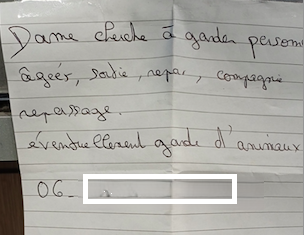 Dame cherche à garder personn
âgéér, sortie, repas, compagnie
repassage.
éventuellement garde d'animaux
06_